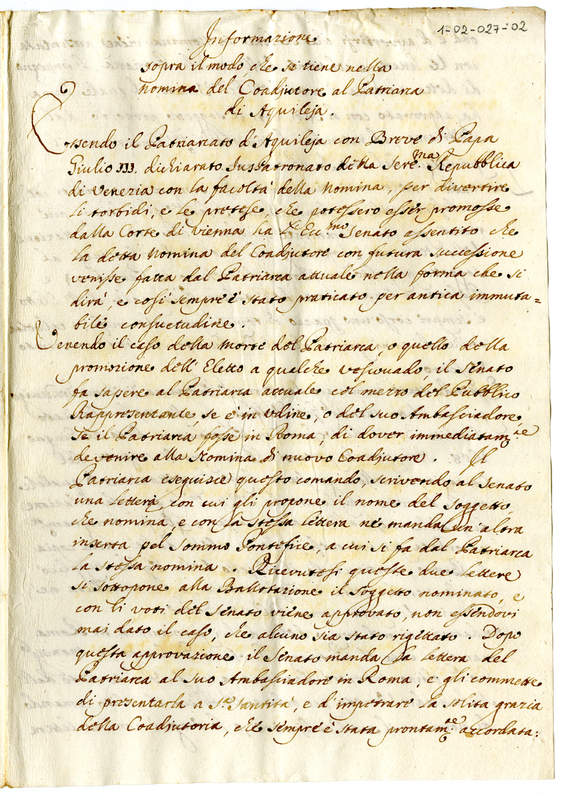 1-02-027-02
Informazione
sopra il modo che si tiene nella
nomina del Coadjutore al Patriarca
di Aquileja.
Essendo il Patriarcato d'Aquileja con Breve di Papa
Giulio III. dichiarato Juspatronato della Ser.ma Repubblica
di Venezia con la facoltà della Nomina, per divertire
li torbidi, e le pretese, che potessero esser promosse
dalla Corte di Vienna ha l'Ecc.mo Senato assentito che
la detta Nomina del Coadjutore con futura successione
venisse fatta dal Patriarca attuale nella forma che si
dirà, e così sempre è stato praticato per antica immuta=
bile consuetudine.
Venendo il caso della Morte del Patriarca, o quello della
promozione dell'Eletto a qualche vescovado il Senato
fa sapere al Patriarca attuale col mezzo del Pubblico
Rappresentante, se è in Udine, o del suo Ambasciadore
se il Patriarca fosse in Roma, di dover immediatam.te
devenire alla Nomina di nuovo Coadjutore. Il
Patriarca eseguisce questo comando, scrivendo al Senato
una lettera, con cui gli propone il nome del soggetto,
che nomina, e con la stessa lettera ne manda un'altra
inserta pel Sommo Pontefice, a cui si fa dal Patriarca
la stessa nomina. Ricevutesi queste due lettere
si sottopone alla Ballotazione il soggetto nominato, e
con li voti del Senato viene approvato, non essendovi
mai dato il caso, che alcuno sia stato rigettato. Dopo
questa approvazione il Senato manda la lettera del
Patriarca al suo Ambasciadore in Roma, e gli commette
di presentarla a S.a Santità, e d'impetrare la solita grazia
della Coadjutoria, che sempre è stata prontam.te accordata: